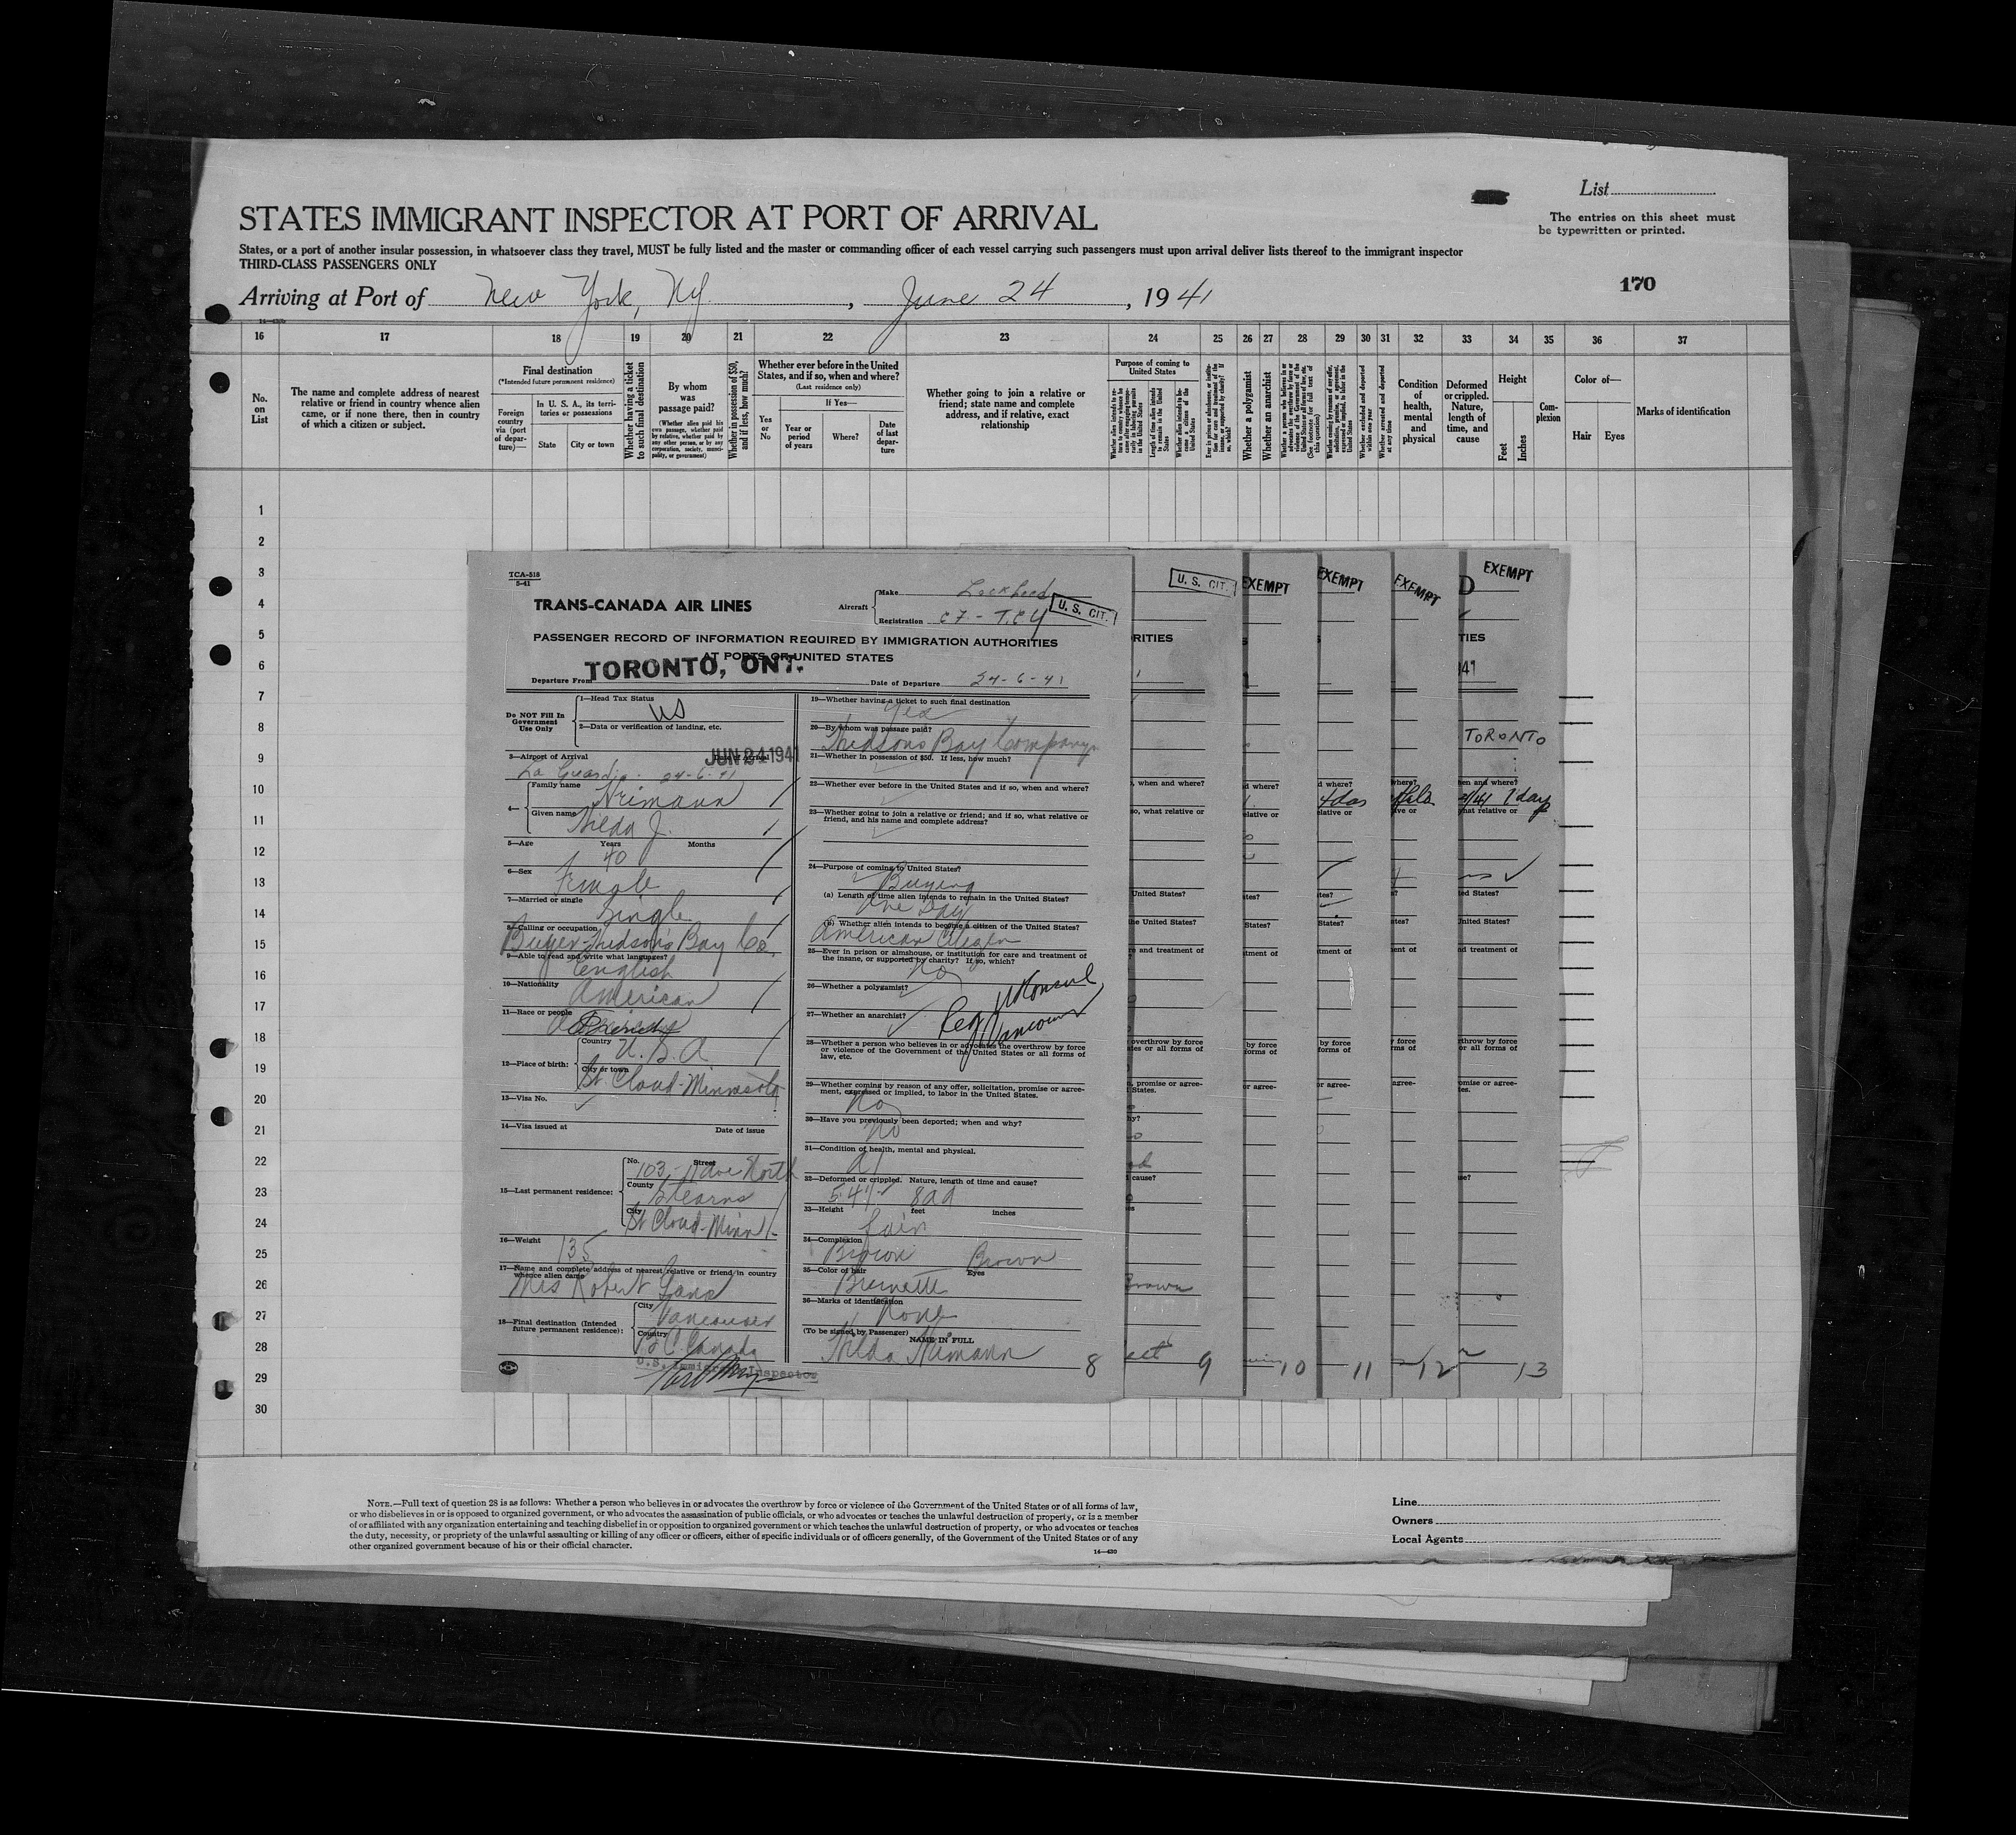 List
STATES IMMIGRANT INSPECTOR AT PORT OF ARRIVAL
The entries on this sheet must
be typewritten or printed.
States, or a port of another insular possession, in whatsoever class they travel, MUST be fully listed and the master or commanding officer of each vessel carrying such passengers must upon arrival deliver lists thereof to the immigrant inspector
THIRD-CLASS PASSENGERS ONLY
170
Arriving at Port of New York, NY, June 24, 1941
16 17 18 19 20 21 22 23 24 25 26 27 28 29 30 31 32 33 34 35 36 37
No. on List
The name and complete address of nearest relative or friend in country whence alien came, or if none there, then in country of which a citizen or subject.
Final destination
(*Intended future permanent residence)
Foreign country via (port of departure)—
In U. S. A., its territories or possessions
State
City or town
Whether having a ticket to such final destination
By whom was passage paid?
(Whether alien paid his own passage, whether paid by relative, whether paid by any other person, or by any corporation, society, municipality, or government)
Whether in possession of $50, and if less, how much?
Whether ever before in the United States, and if so, when and where?
(Last residence only)
Yes or No
If Yes—
Year or period of years
Where?
Date of last departure
Whether going to join a relative or friend; state name and complete address, and if relative, exact relationship
Purpose of coming to United States
Whether a polygamist
Whether an anarchist
Condition of health, mental and physical
Deformed or crippled. Nature, length of time, and cause
Height
Feet
Inches
Complexion
Color of—
Hair
Eyes
Marks of identification
1
2
3
4
5
6
7
8
9
10
11
12
13
14
15
16
17
18
19
20
21
22
23
24
25
26
27
28
29
30
TCA-518
5-41
TRANS-CANADA AIR LINES
Aircraft
Make Lockheed
Registration CF-TCY
U. S. CIT.
PASSENGER RECORD OF INFORMATION REQUIRED BY IMMIGRATION AUTHORITIES
AT PORTS OF UNITED STATES
Departure From TORONTO, ONT.
Date of Departure 24-6-41
Do NOT Fill In Government Use Only
1—Head Tax Status US
2—Data or verification of landing, etc.
JUN 24 1941
3—Airport of Arrival
La Guardia 24-6-41
4—
Family name
Given name Hilda J.
5—Age Years 40 Months
6—Sex Female
7—Married or single Single
8—Calling or occupation
Buyer-Hudson's Bay Co.
9—Able to read and write what languages?
English
10—Nationality American
11—Race or people
12—Place of birth:
Country U.S.A
City or town St. Cloud-Minnesota
13—Visa No.
14—Visa issued at Date of issue
15—Last permanent residence:
No. 103 Street 11 ave North
County Stearns
City St Cloud-Minn
16—Weight 135
17—Name and complete address of nearest relative or friend in country
whence alien came
Mrs Robert
18—Final destination (Intended
future permanent residence):
City Vancouver
Country B.C. Canada
U.S. Immigrant Inspector
19—Whether having a ticket to such final destination
Yes
20—By whom was passage paid?
Hudsons Bay Company
21—Whether in possession of $50. If less, how much?
22—Whether ever before in the United States and if so, when and where?
23—Whether going to join a relative or friend; and if so, what relative or
friend, and his name and complete address?
24—Purpose of coming to United States?
Buying
(a) Length of time alien intends to remain in the United States?
One Day
(b) Whether alien intends to become a citizen of the United States?
American Citizen
25—Ever in prison or almshouse, or institution for care and treatment of
the insane, or supported by charity? If so, which?
No
26—Whether a polygamist?
27—Whether an anarchist?
Reg Consul
Vancouver
28—Whether a person who believes in or advocates the overthrow by force
or violence of the Government of the United States or all forms of
law, etc.
29—Whether coming by reason of any offer, solicitation, promise or agree-
ment, expressed or implied, to labor in the United States.
No
30—Have you previously been deported; when and why?
No
31—Condition of health, mental and physical.
32—Deformed or crippled. Nature, length of time and cause?
33—Height feet inches
Fair
34—Complexion
Brown Brown
35—Color of hair Eyes
Brunette
36—Marks of identification
None
(To be signed by Passenger) NAME IN FULL
8
U. S. CIT.
9
EXEMPT
10
EXEMPT
11
EXEMPT
12
EXEMPT
TORONTO
1 day
13
NOTE.—Full text of question 28 is as follows: Whether a person who believes in or advocates the overthrow by force or violence of the Government of the United States or of all forms of law,
or who disbelieves in or is opposed to organized government, or who advocates the assassination of public officials, or who advocates or teaches the unlawful destruction of property, or is a member
of or affiliated with any organization entertaining and teaching disbelief in or opposition to organized government or which teaches the unlawful destruction of property, or who advocates or teaches
the duty, necessity, or propriety of the unlawful assaulting or killing of any officer or officers, either of specific individuals or of officers generally, of the Government of the United States or of any
other organized government because of his or their official character.
14—430
Line
Owners
Local Agents